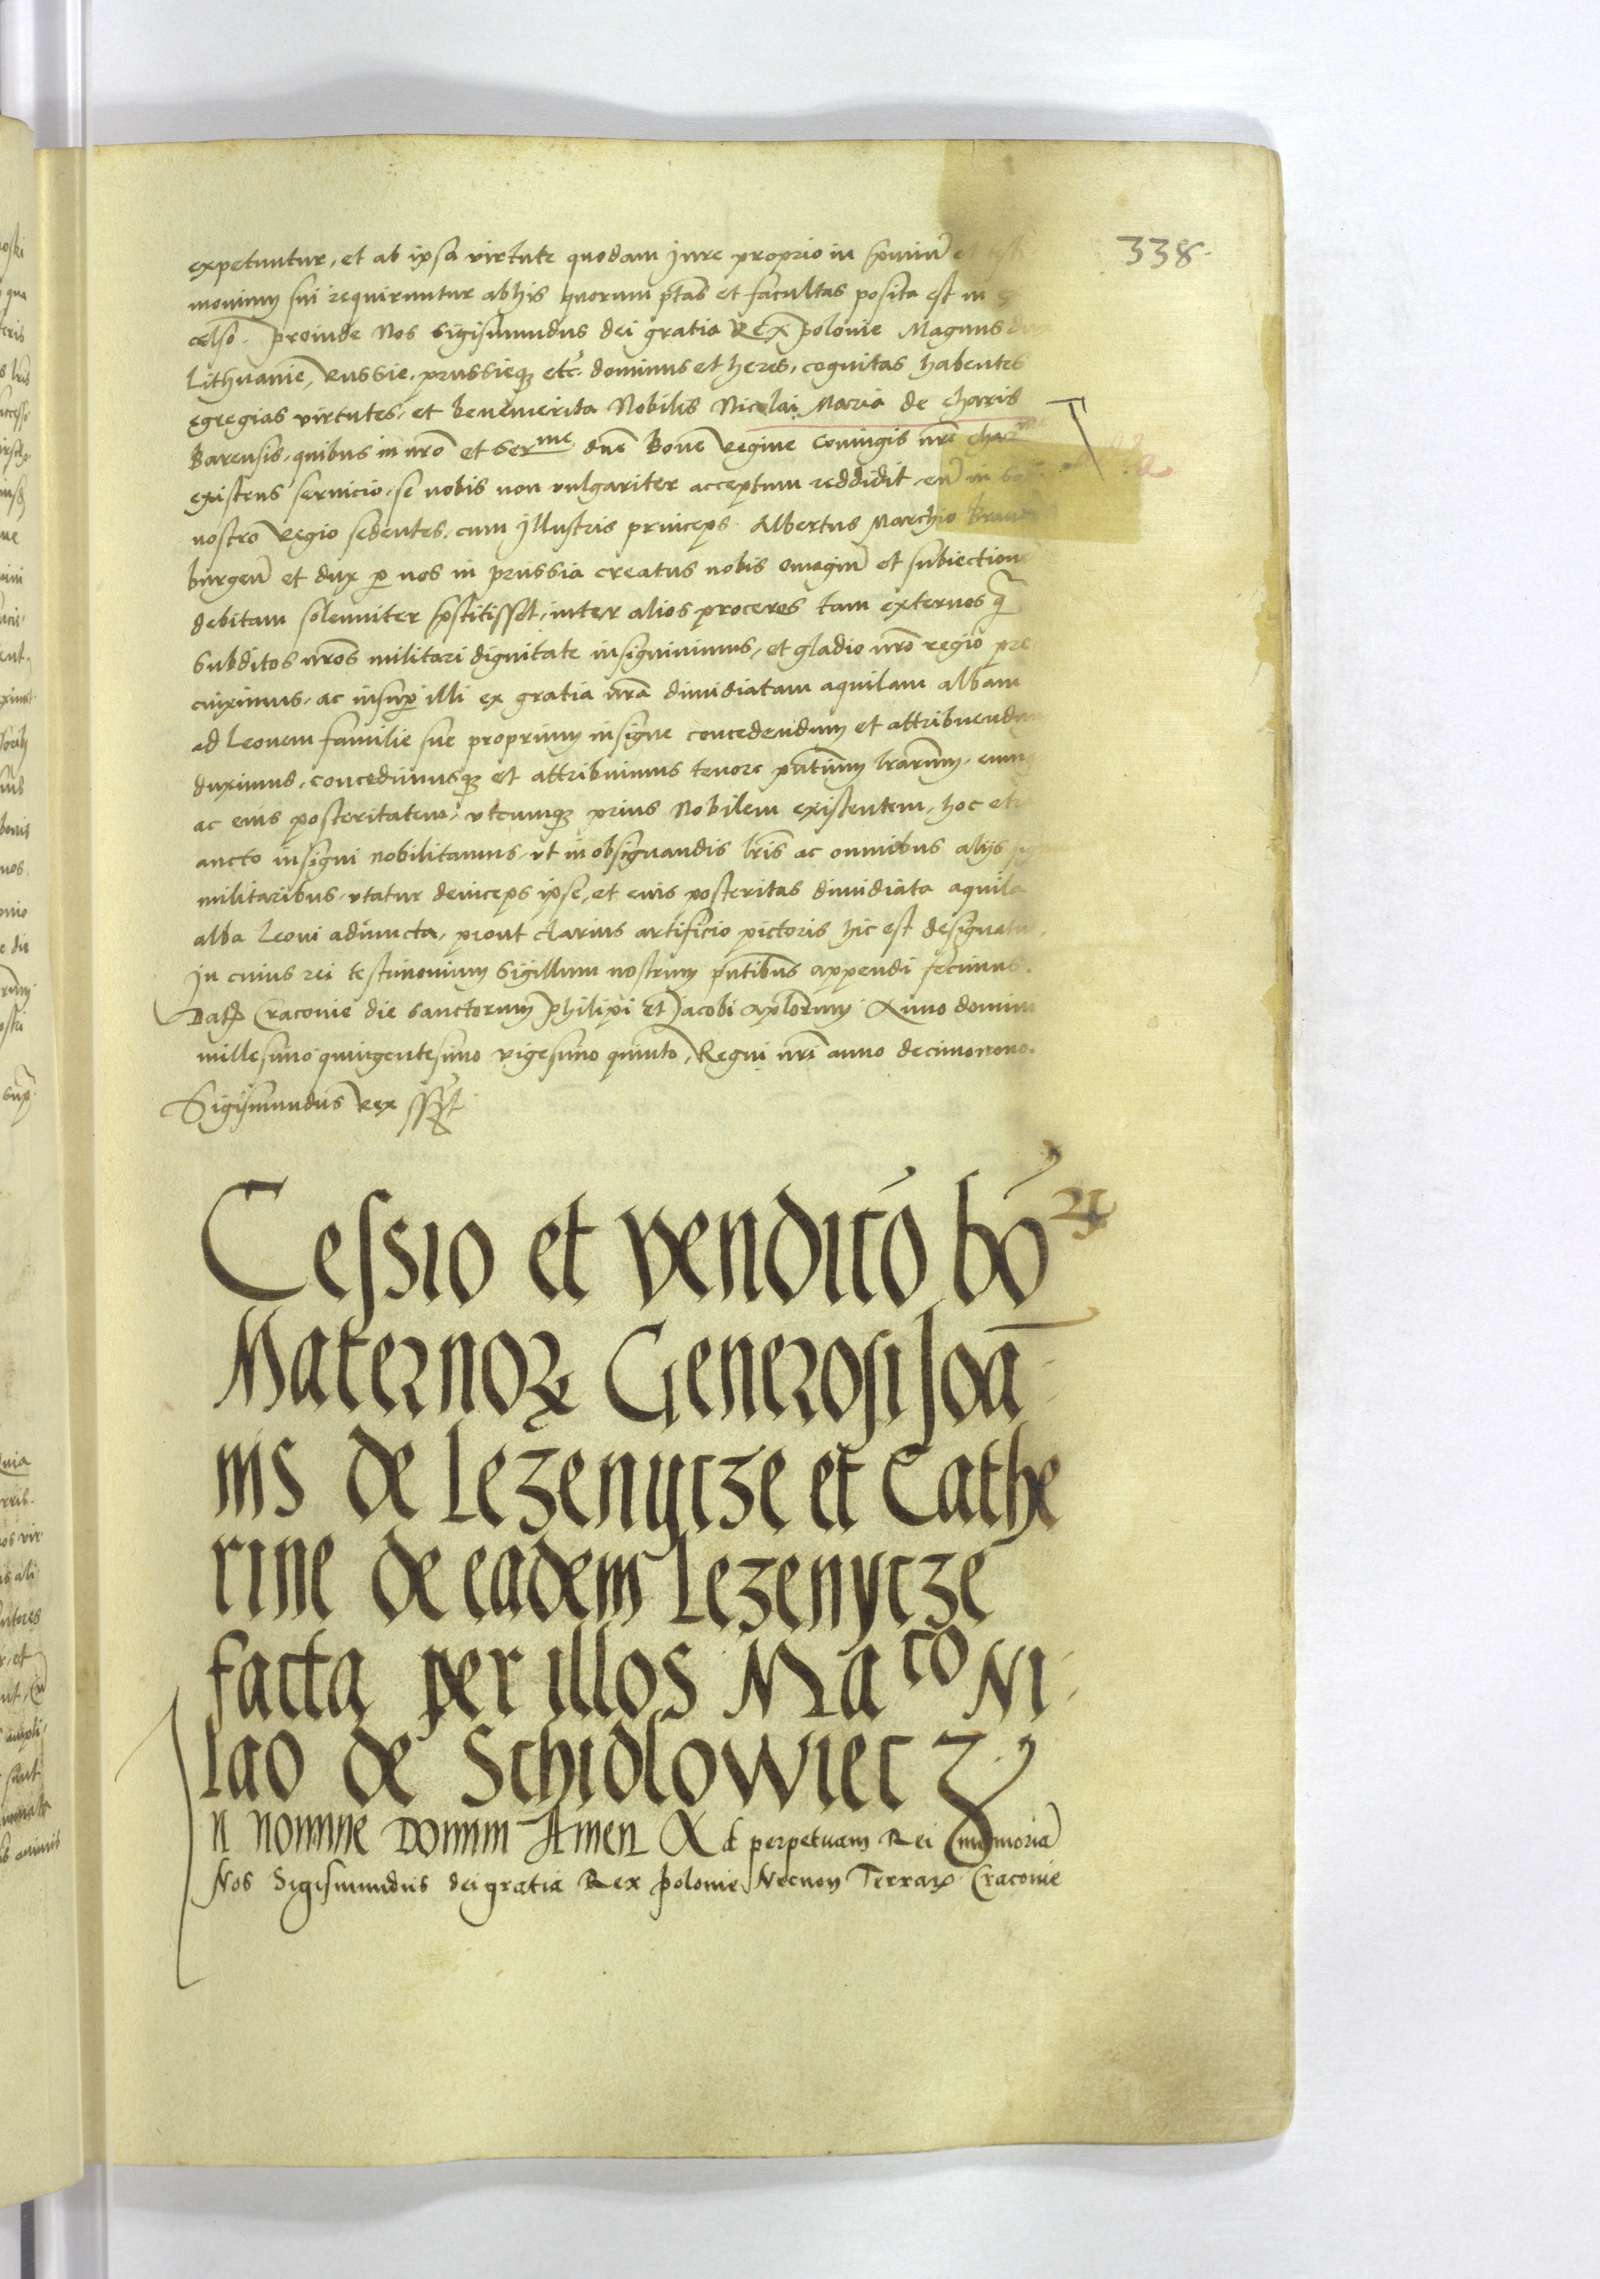 338.
expetuntur, et ab ipsa virtute quodam Jure proprio in premiũ et
monium sui requiruntur ab his quorum ptas̃ et facultas posita est in
celso. Proinde Nos Sigismundus dei gratia Rex Polonie Magnus dux
Lithuanie, Russie, Prussieq; etc. dominus et heres, cognitas habentes
egregias virtutes, et benemerita Nobilis Nicolai Maria de Charis
Barensis, quibus in nrõ et Ser^me dnẽ Bone Regine Coniugis nrẽ char^me
existens servicio, se nobis non vulgariter acceptum reddidit, eũ in
nostro Regio sedentes, cum Illustris princeps Albertus Marchio Branden
burgeñ et dux p nos in Prussia creatus nobis omagiũ et subiectionẽ
debitam solenniter prestitisset, inter alios proceres tam externos q̃
Subditos nros̃ militari dignitate insignivimus, et gladio nrõ regio pre
cinximus, ac insup illi ex gratia nrã dimidiatam aquilam albam
ad Leonem familie sue proprium insigne concedendum et attribuendum
duximus, concedimusq; et attribuimus tenore pñtium lrarum, eumq
ac eius posteritatem, utcumq; prius Nobilem existentem, hoc
aucto insigni nobilitamus, ut in obsignandis lris̃ ac omnibus alijs
militaribus, utatur deinceps ipse, et eius posteritas dimidiata aquila
alba Leoni adiuncta, prout clarius artificio pictoris hic est designatũ.
In cuius rei testimonium Sigillum nostrum pñtibus appendi fecimus.
Dat̃ Cracovie die Sanctorum Philipi et Jacobi aplorum Anno domini
millesimo quingentesimo vigesimo quinto, Regni nri anno decimonono.
Sigismundus Rex sst
Cessio et venditõ bõꝝ
Maternoꝝ Generosi Joã-
nis de Lezenycze et Cathe
rine de eadem Lezenycze
facta per illos Ma^co Ni-
lao de Schidlowiec ꝛc
In nomine Domini Amen Ad perpetuam Rei memoriã
Nos Sigismundus dei gratia Rex Polonie Necnon Terraꝝ Cracovie